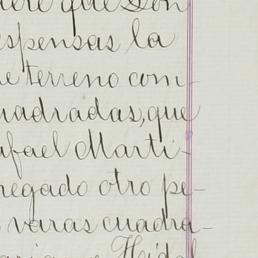 que Don
espensas la
e terreno com-
uadradas, que
afael Marti-
regado otro pe-
s varas cuadra-